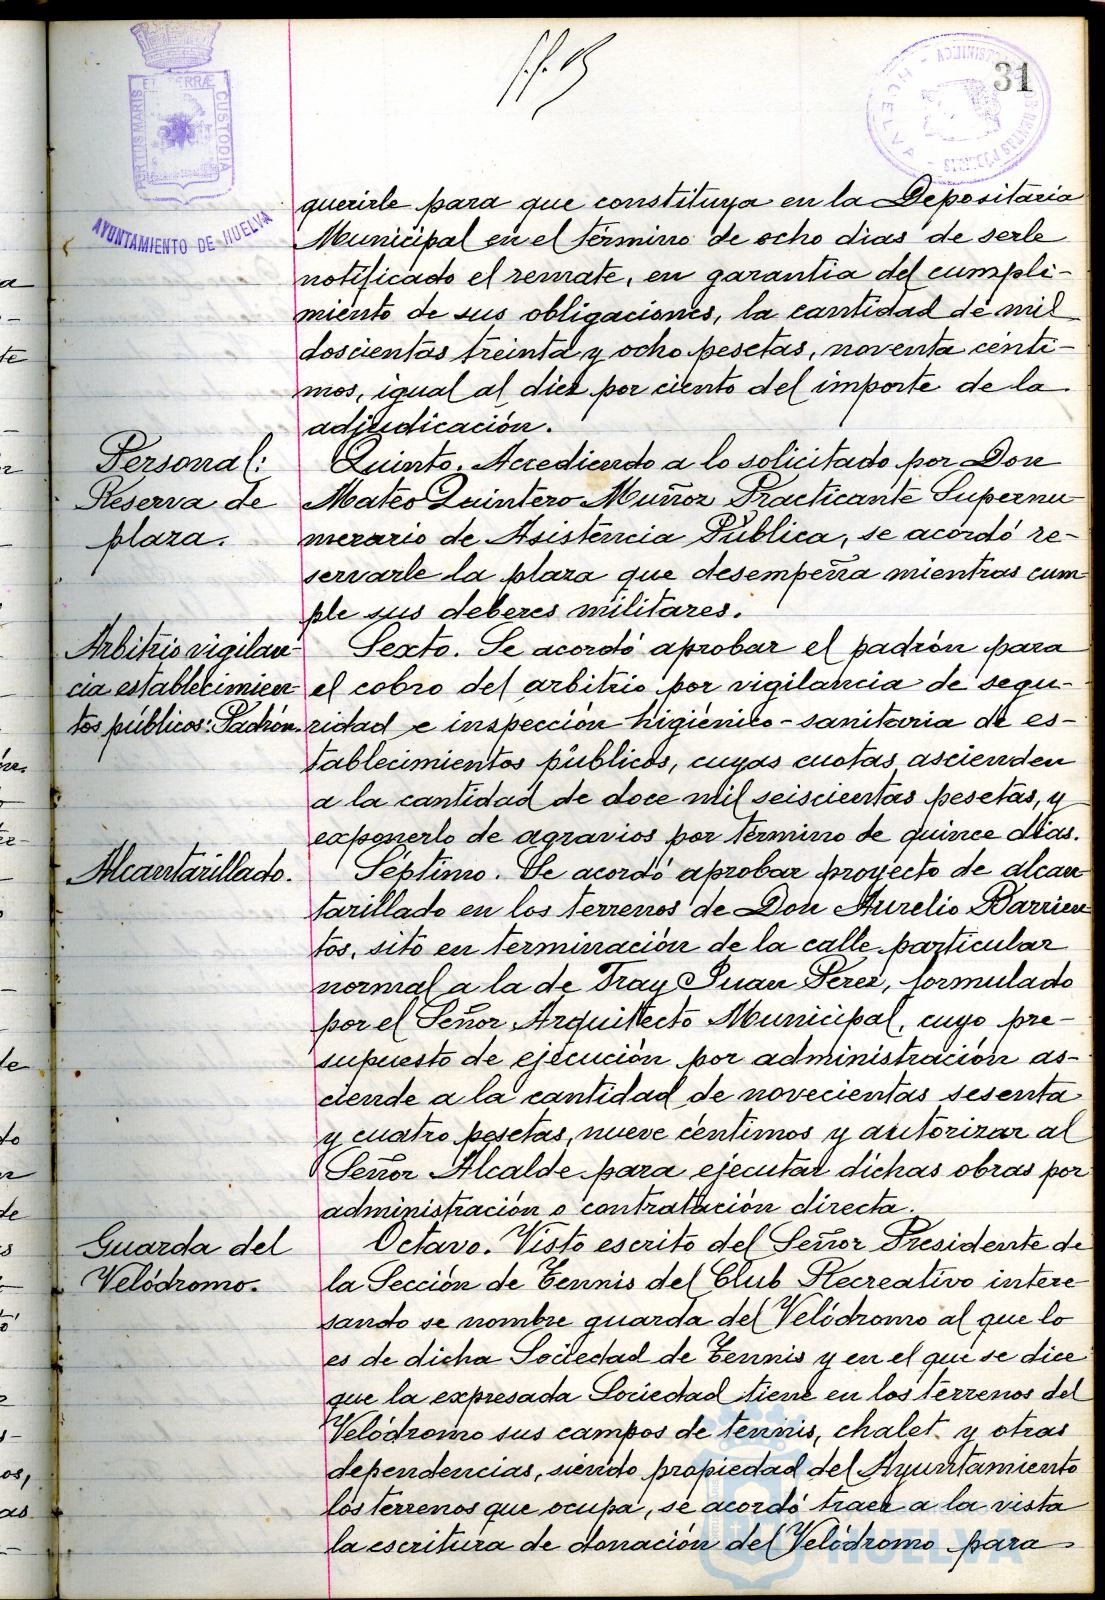 31
PORTUS MARIS ET TERRÆ CUSTODIA
AYUNTAMIENTO DE HUELVA
querirle para que constituya en la Depositaria
Municipal en el término de ocho dias de serle
notificado el remate, en garantia del cumpli-
miento de sus obligaciones, la cantidad de mil
doscientas treinta y ocho pesetas, noventa cénti-
mos, igual al diez por ciento del importe de la
adjudicación.
Personal:
Reserva de
plaza.
Quinto. Accediendo a lo solicitado por Don
Mateo Quintero Muñoz Practicante Supernu-
merario de Asistencia Pública, se acordó re-
servarle la plaza que desempeña mientras cum-
ple sus deberes militares.
Arbitrio vigilan-
cia establecimien-
tos públicos: Padrón.
Sexto. Se acordó aprobar el padrón para
el cobro del arbitrio por vigilancia de segu-
ridad e inspección higiénico-sanitaria de es-
tablecimientos públicos, cuyas cuotas ascienden
a la cantidad de doce mil seiscientas pesetas, y
exponerlo de agravios por término de quince dias.
Alcantarillado.
Séptimo. Se acordó aprobar proyecto de alcan-
tarillado en los terrenos de Don Aurelio Barrien-
tos, sito en terminación de la calle particular
normal a la de Fray Juan Perez, formulado
por el Señor Arquitecto Municipal, cuyo pre-
supuesto de ejecución por administración as-
ciende a la cantidad de novecientas sesenta
y cuatro pesetas, nueve céntimos y autorizar al
Señor Alcalde para ejecutar dichas obras por
administración o contratación directa.
Guarda del
Velódromo.
Octavo. Visto escrito del Señor Presidente de
la Sección de Tennis del Club Recreativo intere-
sando se nombre guarda del Velódromo al que lo
es de dicha Sociedad de Tennis y en el que se dice
que la expresada Sociedad tiene en los terrenos del
Velódromo sus campos de tennis, chalet y otras
dependencias, siendo propiedad del Ayuntamiento
los terrenos que ocupa, se acordó traer a la vista
la escritura de donación del Velódromo para
HUELVA